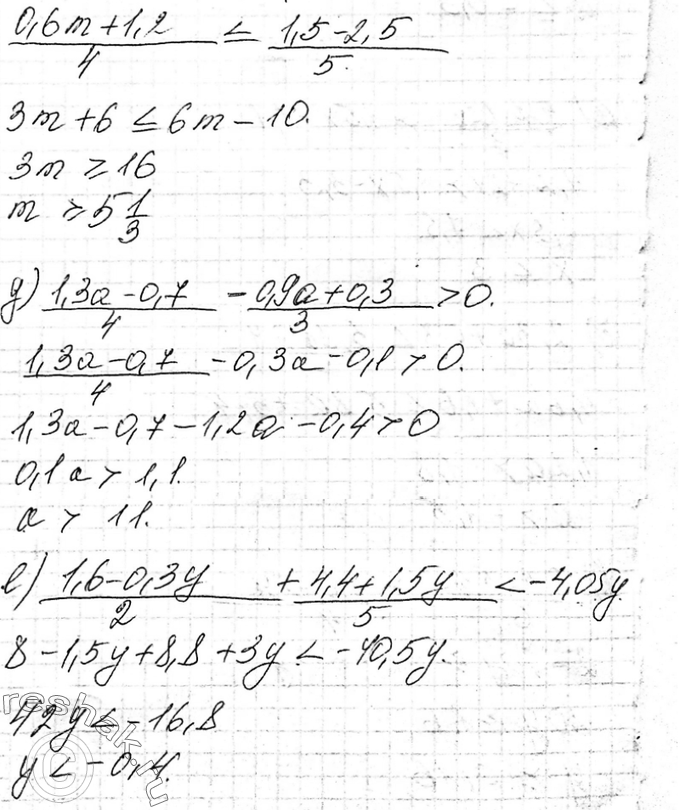 0,6m+1,2/4 ≤ 1,5-2,5/5.
3m+6 ≤ 6m-10.
3m ≥ 16
m ≥ 5 1/3
д) 1,3a-0,7/4 - 0,9a+0,3/3 > 0.
1,3a-0,7/4 - 0,3a-0,1 > 0.
1,3a-0,7-1,2a-0,4 > 0
0,1a > 1,1.
a > 11.
е) 1,6-0,3y/2 + 4,4+1,5y/5 < -4,05y
8-1,5y+8,8+3y < -40,5y.
42y < -16,8
y < -0,4.
reshak.ru
©